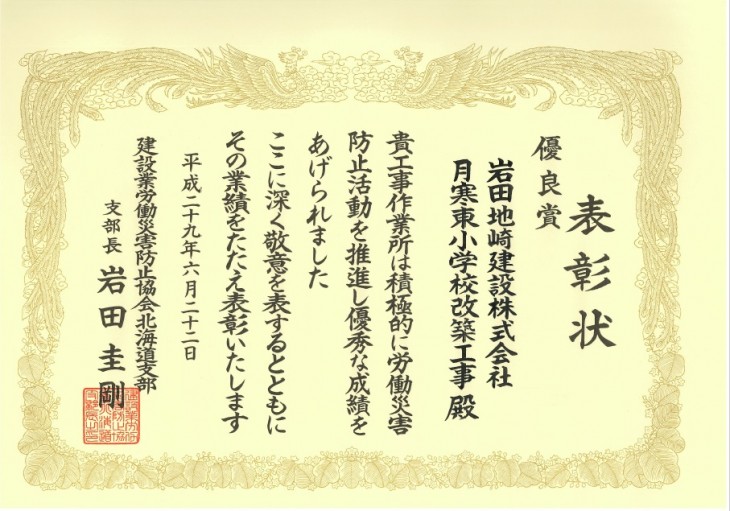 表彰状
優良賞
岩田地崎建設株式会社
月寒東小学校改築工事 殿
貴工事作業所は積極的に労働災害
防止活動を推進し優秀な成績を
あげられました
ここに深く敬意を表するとともに
その業績をたたえ表彰いたします
平成二十九年六月二十二日
建設業労働災害防止協会北海道支部
支部長 岩田圭剛